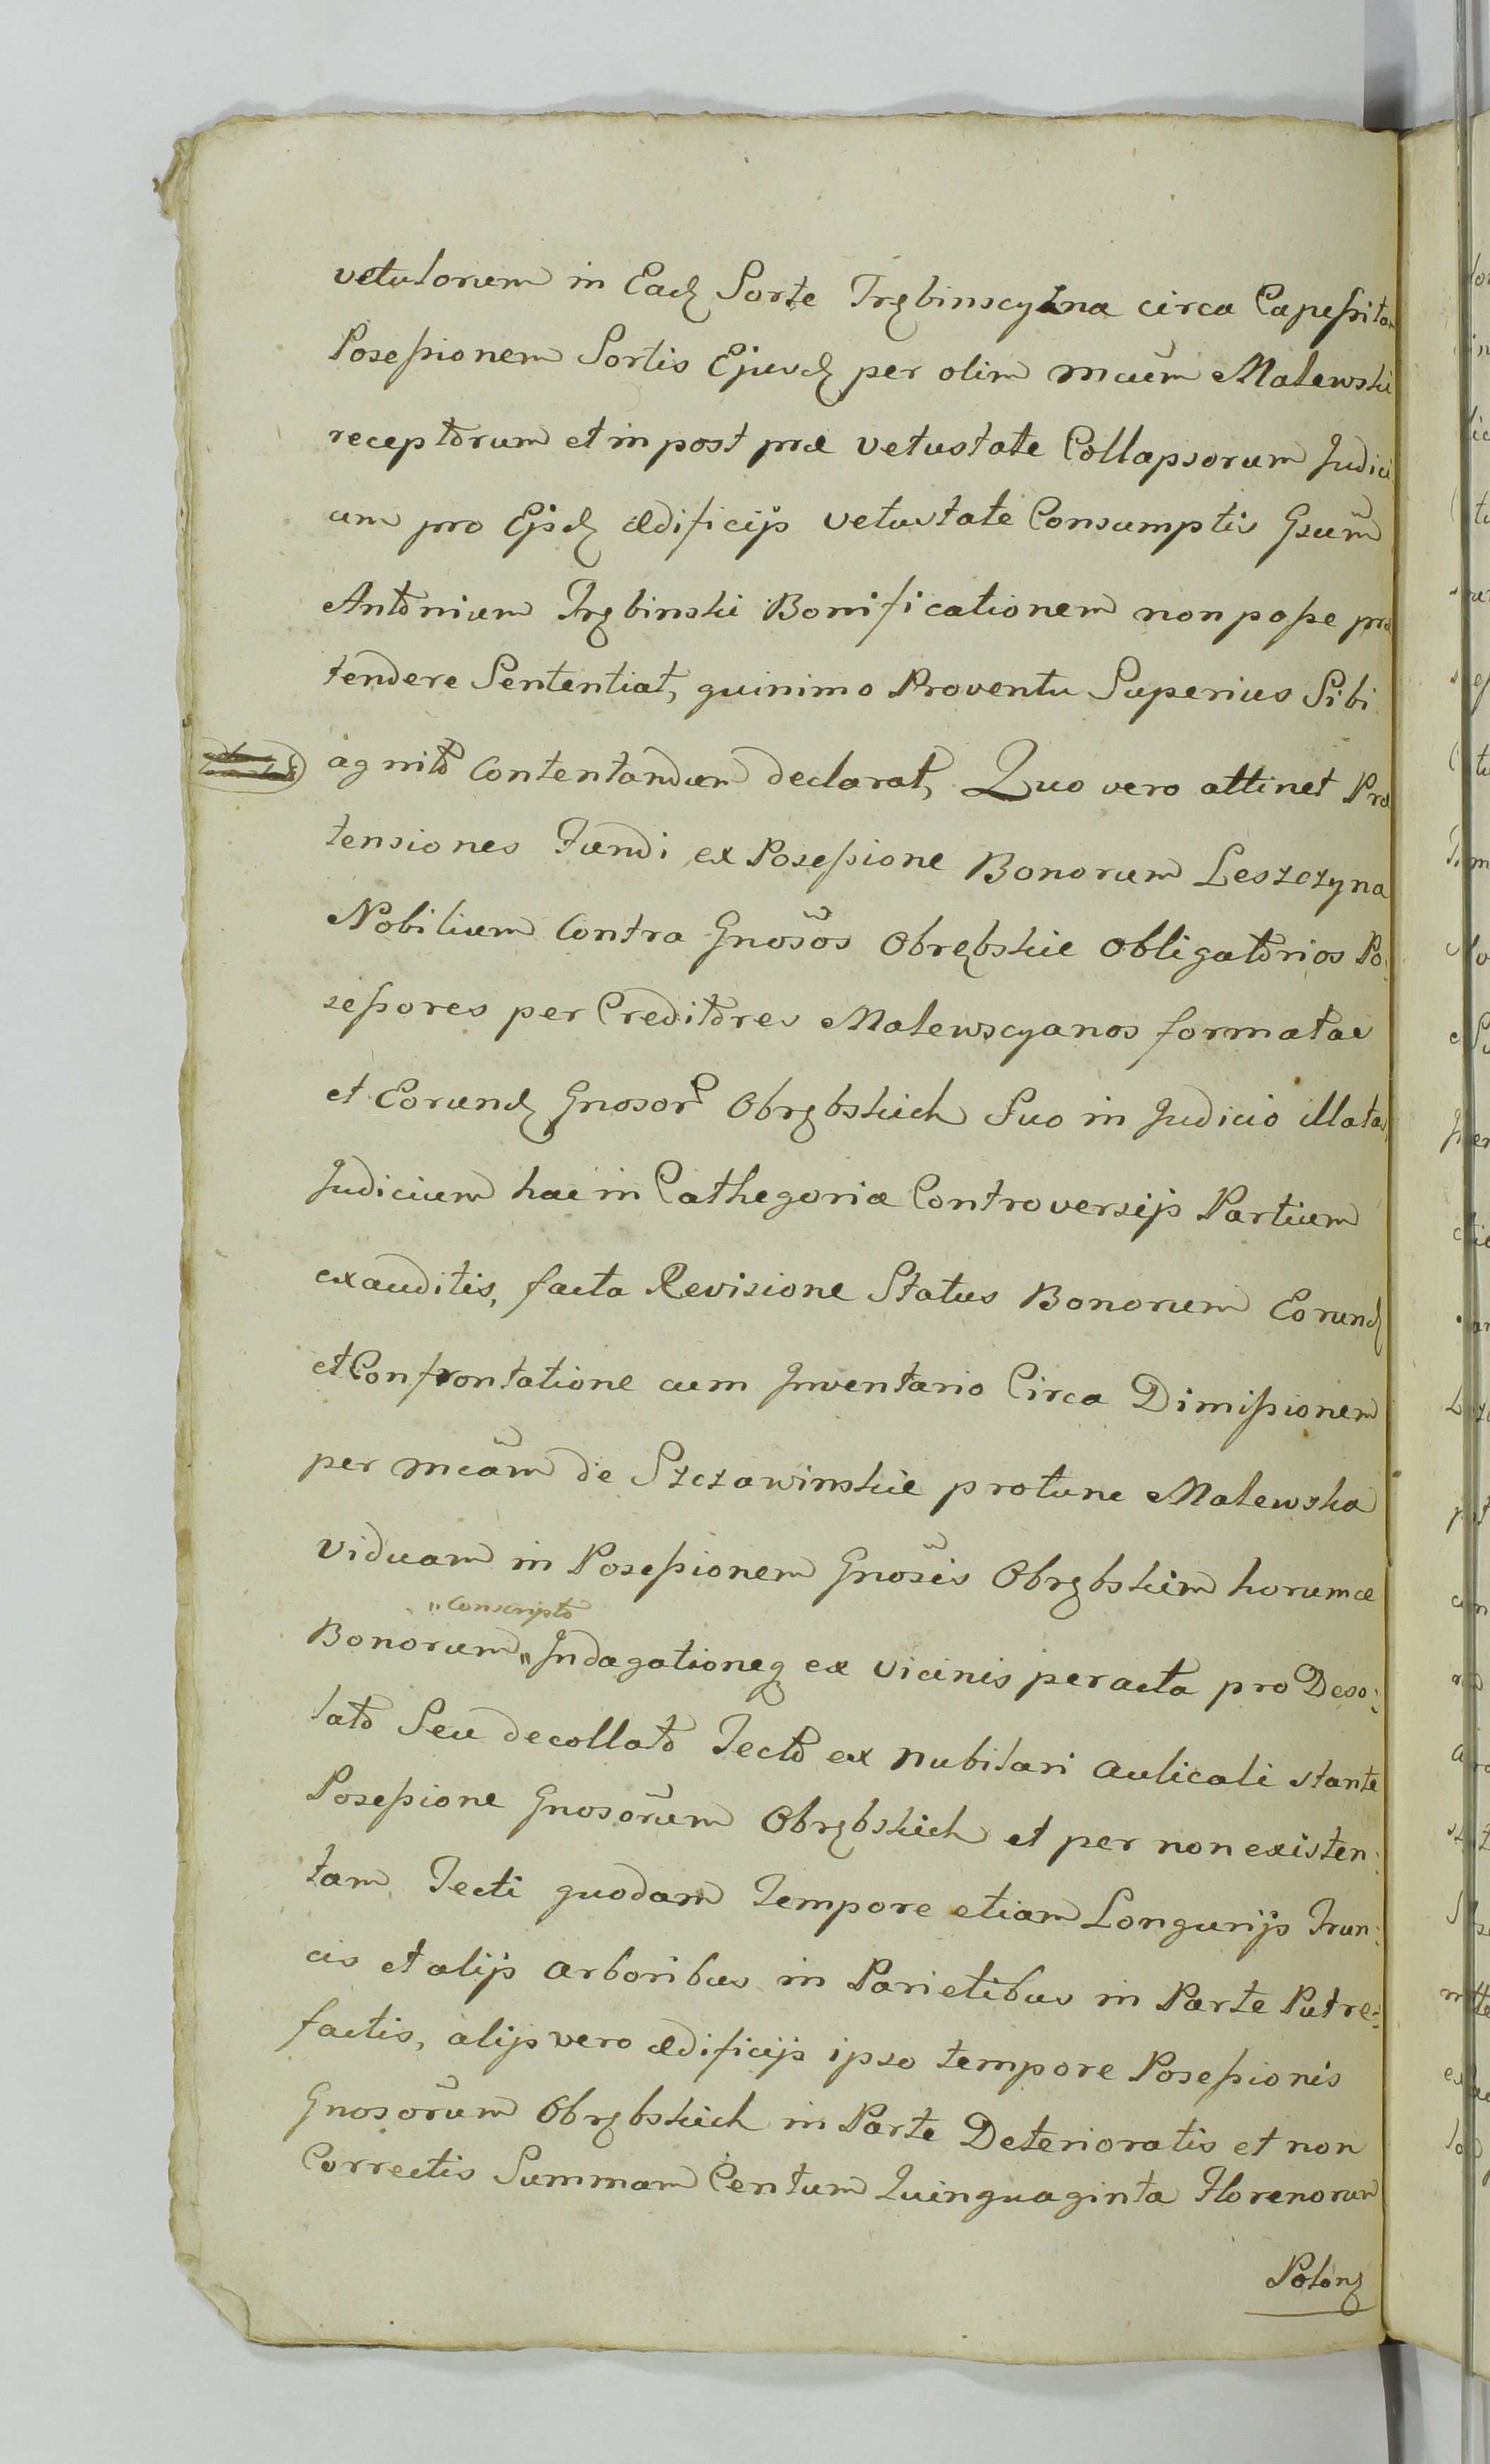 vetulorum in Eadz Sorte Trębinscyzna circa Capeßitam
Poseßionem Sortis Ejusdz per olim Mcum Malewski
receptorum et in post præ vetustate Collapsorum Judici
um pro Ejsdz ædificijs vetustate Consumptis Gsum
Antonium Trębinski Bonificationem non poße præ
tendere Sententiat, quinimo Proventu Superius Sibi
agnito Contentandum declarat, Quo vero attinet Præ
tensiones Fundi ex Poseßione Bonorum Leszczyna
Nobilium Contra Gnosos Obrębskie Obligatorios Po:
seßores per Creditores Malewscyanos formatas
et Eorundz Gnosor Obrębskich Suo in Judicio illatas
Judicium hac in Cathegoria Controversijs Partium
exauditis, facta Revisione Status Bonorum Eorundz
et Confrontatione cum Inventario Circa Dimißionem
per Mcam de Szczawinskie protunc Malewska
viduam in Poseßionem Gnosis Obrębskim horumce
"Conscripto
Bonorum" Indagationeq ex vicinis peracta pro Deso:
lato Seu decollato Tecto ex Nubilari Aulicali stante
Poseßione Gnosorum Obrębskich et per non existen:
tam Tecti quodam Tempore etiam Longurijs Trun:
cis et alijs arboribus in Parietibus in Parte Putre:
factis, alijs vero ædificijs ipso tempore Poseßionis
Gnosorum Obrębskich in Parte Deterioratis et non
Correctis Summam Centum Quinquaginta Florenorum
Polonz